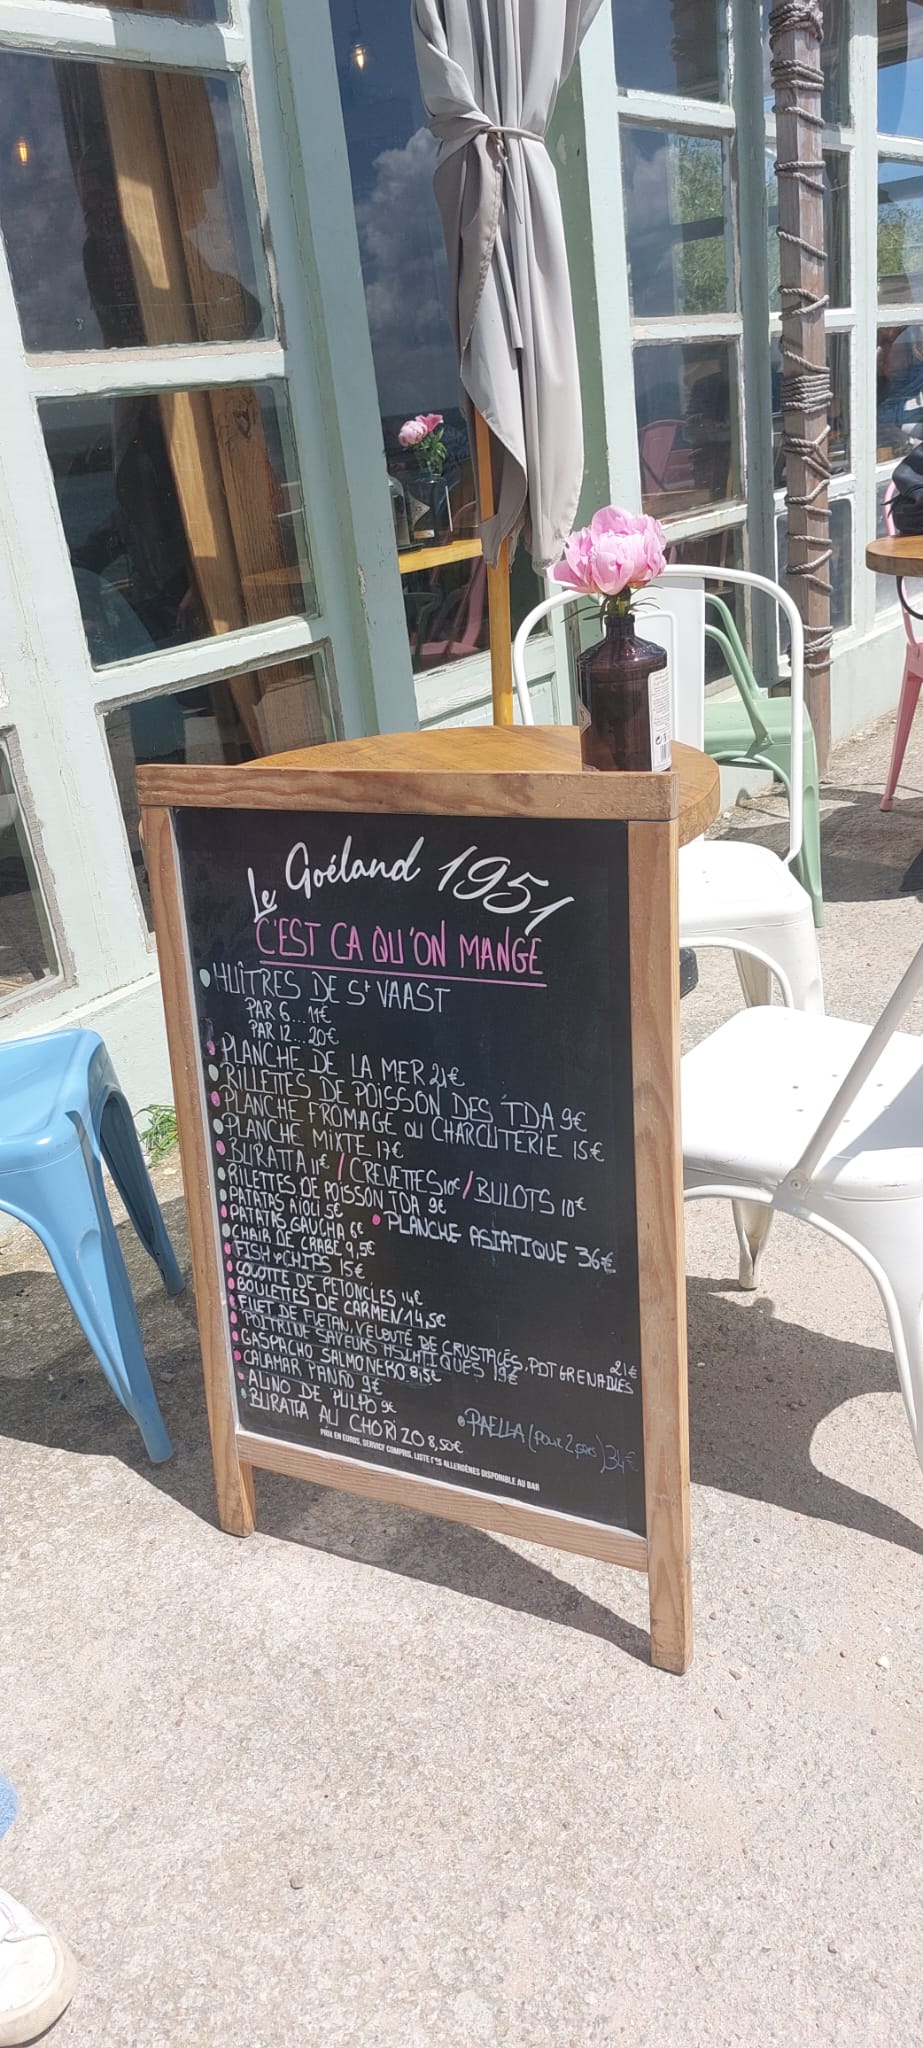 Le Goéland 1951
C'EST CA QU'ON MANGE
HUÎTRES DE St VAAST
PAR 6...11€
PAR 12...20€
PLANCHE DE LA MER 21€
RILLETTES DE POISSON DES 'TDA 9€
PLANCHE FROMAGE OU CHARCUTERIE 15€
PLANCHE MIXTE 17€
BURATTA 11€ / CREVETTES 10€ / BULOTS 10€
RILETTES DE POISSON TDA 9€
PATATAS AÏOLI 5€
PLANCHE ASIATIQUE 36€
PATATAS GAUCHA 6€
CHAIR DE CRABE 9,5€
FISH & CHIPS 15€
COCOTTE DE PETONCLES 14€
BOULETTES DE CARMEN 14,5€
FILET DE FLETAN, VELOUTÉ DE CRUSTACÉS, PDT GRENAILLES 21€
POITRINE SAVEURS ASIATIQUES 19€
GASPACHO SALMONERO 8,5€
CALAMAR PANKO 9€
ALINO DE PULPO 9€
BURATTA AU CHORIZO 8,50€
PAELLA (POUR 2 pers) 34€
PRIX EN EUROS, SERVICE COMPRIS, LISTE DES ALLERGÈNES DISPONIBLE AU BAR